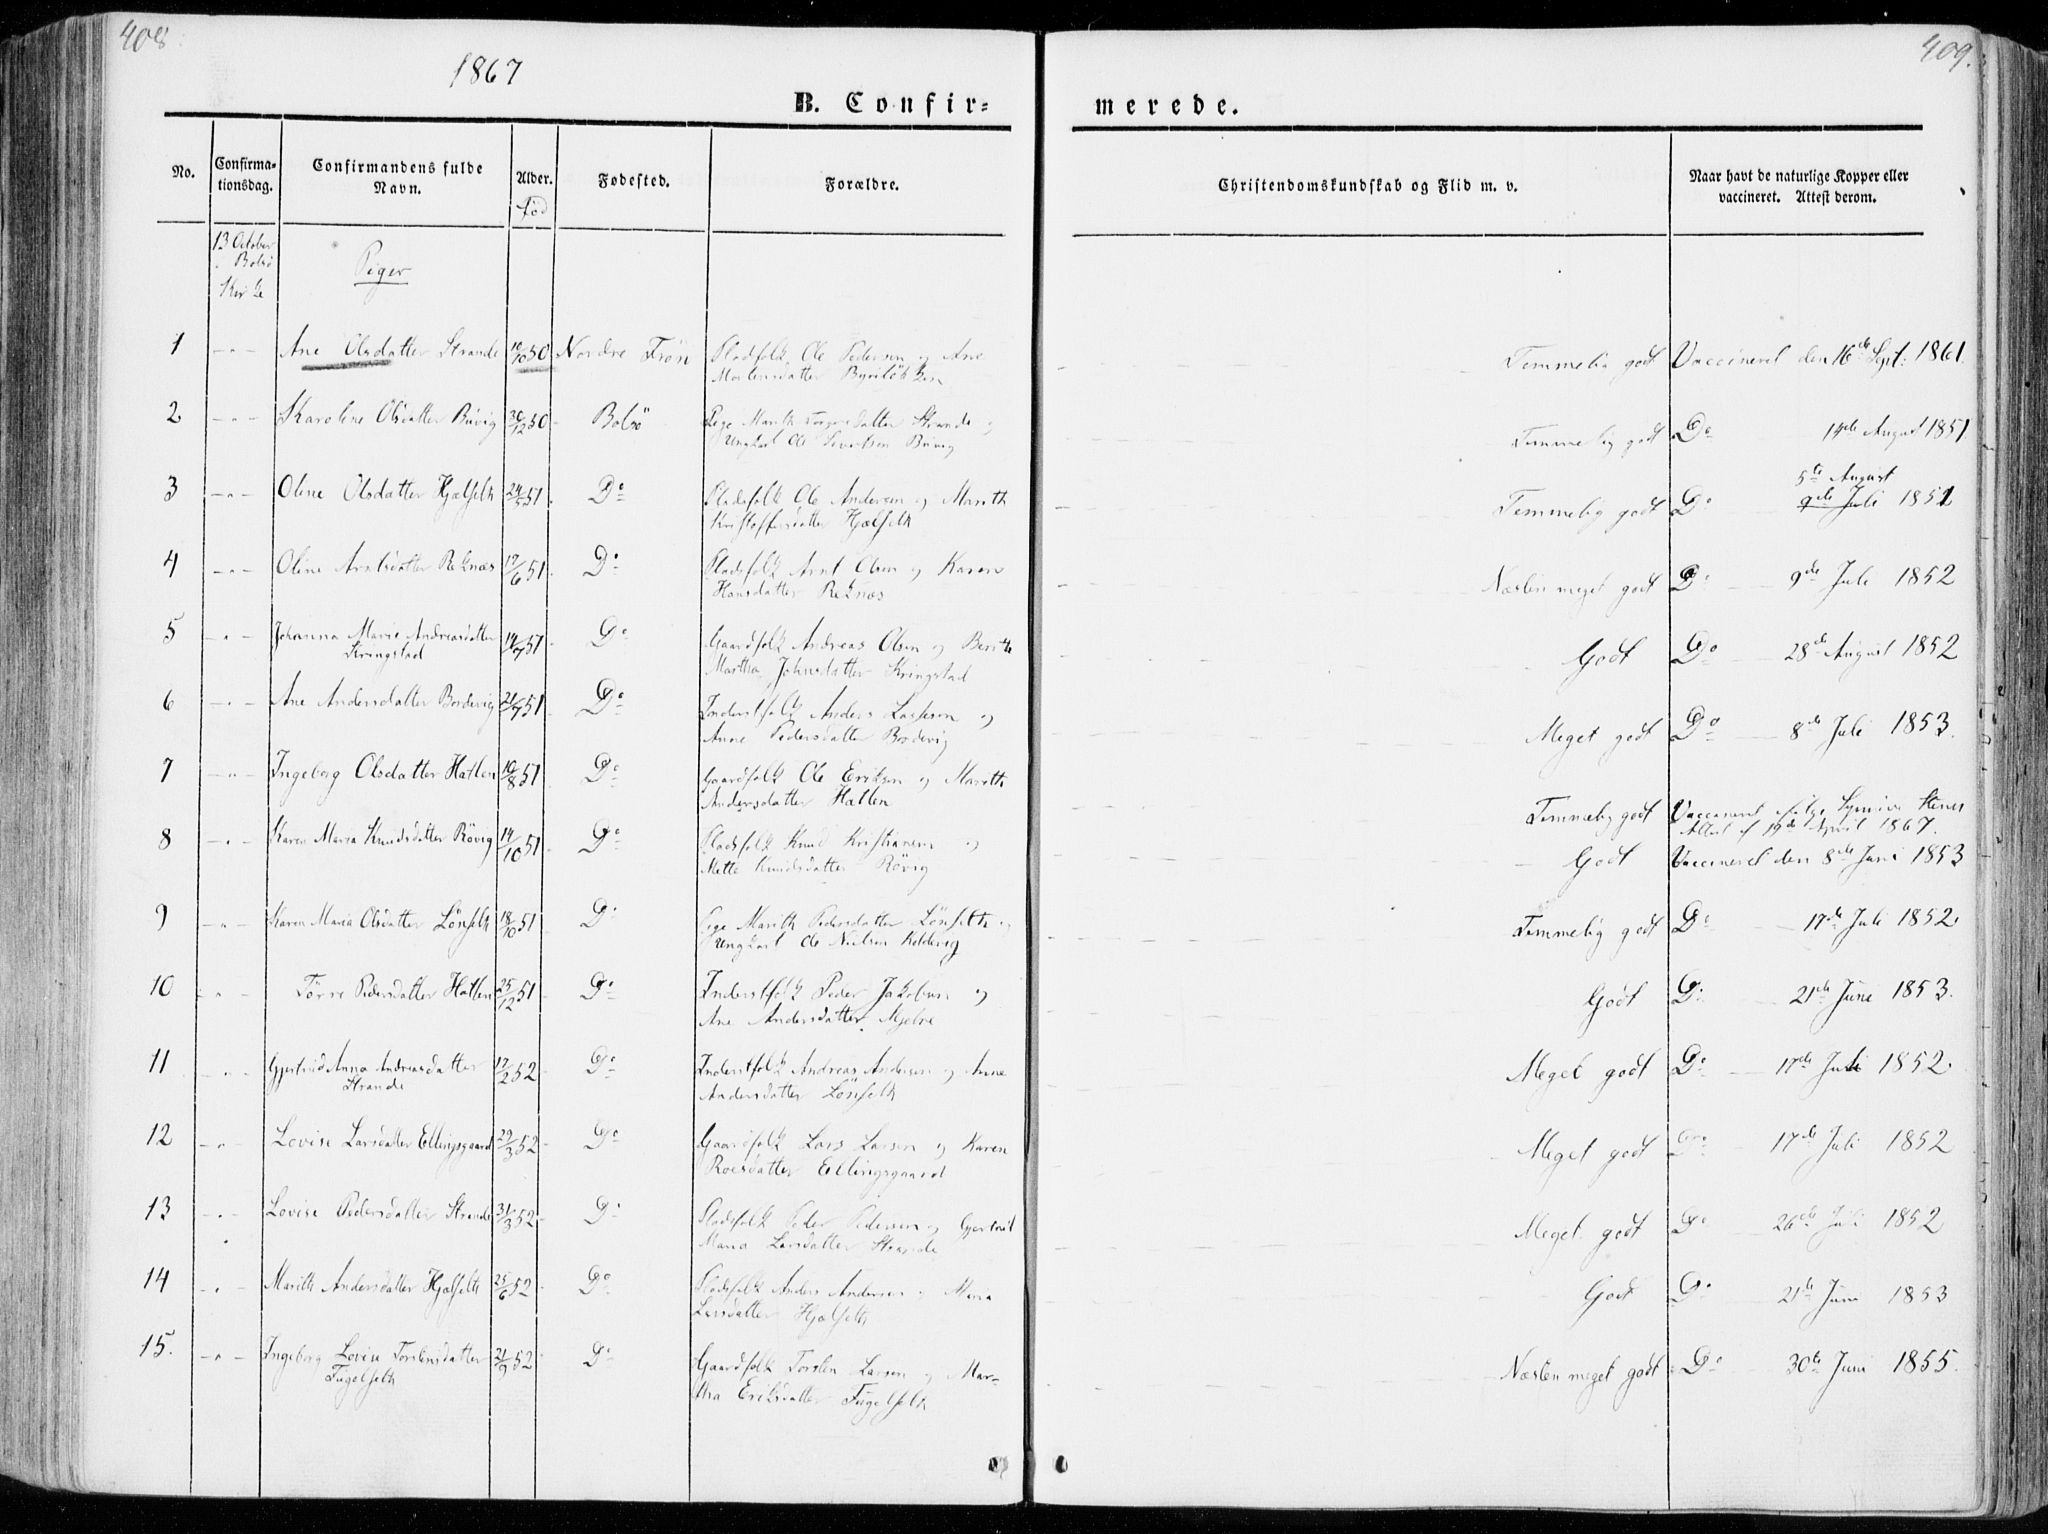 408
409.
1867
B. Confir-
merede.
No.
Confirma-
tionsdag.
Confirmandens fulde
Navn.
Alder.
fød
Fødested.
Forældre.
Christendomskundskab og Flid m. v.
Naar havt de naturlige Kopper eller
vaccineret. Attest derom.
13 October
Bolsö
Kirke
Piger
1 - " - Ane Olsdatter Strande 10/10 50 Nordre Frön Pladsfolk Ole Pedersen og Ane Temmelig godt Vaccineret den 16de Sept. 1861.
Mortensdatter
2 - " - Karoline Olsdatter Büvig 30/12 50 Bolsö Pige Marith Torgersdatter Strande og Temmelig godt Do 14de August 1851
Ungkarl Ole Sivertsen Büvig
3 - " - Oline Olsdatter Hjelseth 24/5 51 Do Pladsfolk Ole Andersen og Marith Temmelig godt Do 5te August 9de Juli 1851
Kristoffersdatter Hjelseth
4 - " - Oline Arntsdatter Reknæs 17/6 51 Do Pladsfolk Arnt Olsen og Karen Næsten meget godt Do 9de Juli 1852
Hansdatter Reknæs
5 - " - Johanna Marie Andreasdatter 14/7 51 Do Gaardfolk Andreas Olsen og Berith Godt Do 28de August 1852
Kringstad Martha Johnsdatter Kringstad
6 - " - Ane Andersdatter Bordevig 21/7 51 Do Inderstfolk Anders Lassesen og Meget godt Do 8de Juli 1853.
Anne Pedersdatter Bordevig
7 - " - Ingeborg Olsdatter Hatlen 10/8 51 Do Gaardfolk Ole Eriksen og Marith Temmelig godt Vaccineret ifølge
Andersdatter Hatlen Attest af 19de April 1867.
8 - " - Karen Maria Knudsdatter Rövig 14/10 51 Do Pladsfolk Knud Kristiansen og Godt Vaccineret den 8de Juni 1853
Mette Knudsdatter Rövig
9 - " - Karen Maria Olsdatter Lönseth 18/10 51 Do Pige Marith Pedersdatter Lönseth og Temmelig godt Do 17de Juli 1852.
Ungkarl Ole Nielsen
10 - " - Pedersdatter Hatlen 25/12 51 Do Inderstfolk Peder Jakobsen og Godt Do 21de Juni 1853.
Ane Andersdatter Mjelve
11 - " - Gjertrud Anna Andreasdatter 12/2 52 Do Inderstfolk Andreas Andersen og Anne Meget godt Do 17de Juli 1852.
Strande Andersdatter Lönseth
12 - " - Lovise Larsdatter Ellingsgaard 29/3 52 Do Gaardfolk Lars Larsen og Karen Meget godt Do 17de Juli 1852
Roesdatter Ellingsgaard
13 - " - Lovise Pedersdatter Strande 31/3 52 Do Pladsfolk Peder Pedersen og Gjertrud Meget godt Do 26de Juli 1852
Maria Larsdatter Strande
14 - " - Marith Andersdatter Hjelseth 25/6 52 Do Pladsfolk Anders Andersen og Maria Godt Do 21de Juni 1853
Larsdatter Hjelseth
15. - " - Ingeborg Lovise Torstensdatter 21/9 52 Do Gaardfolk Torsten Larsen og Mar- Næsten meget godt Do 30te Juni 1855.
Fugelseth tha Eriksdatter Fugelseth